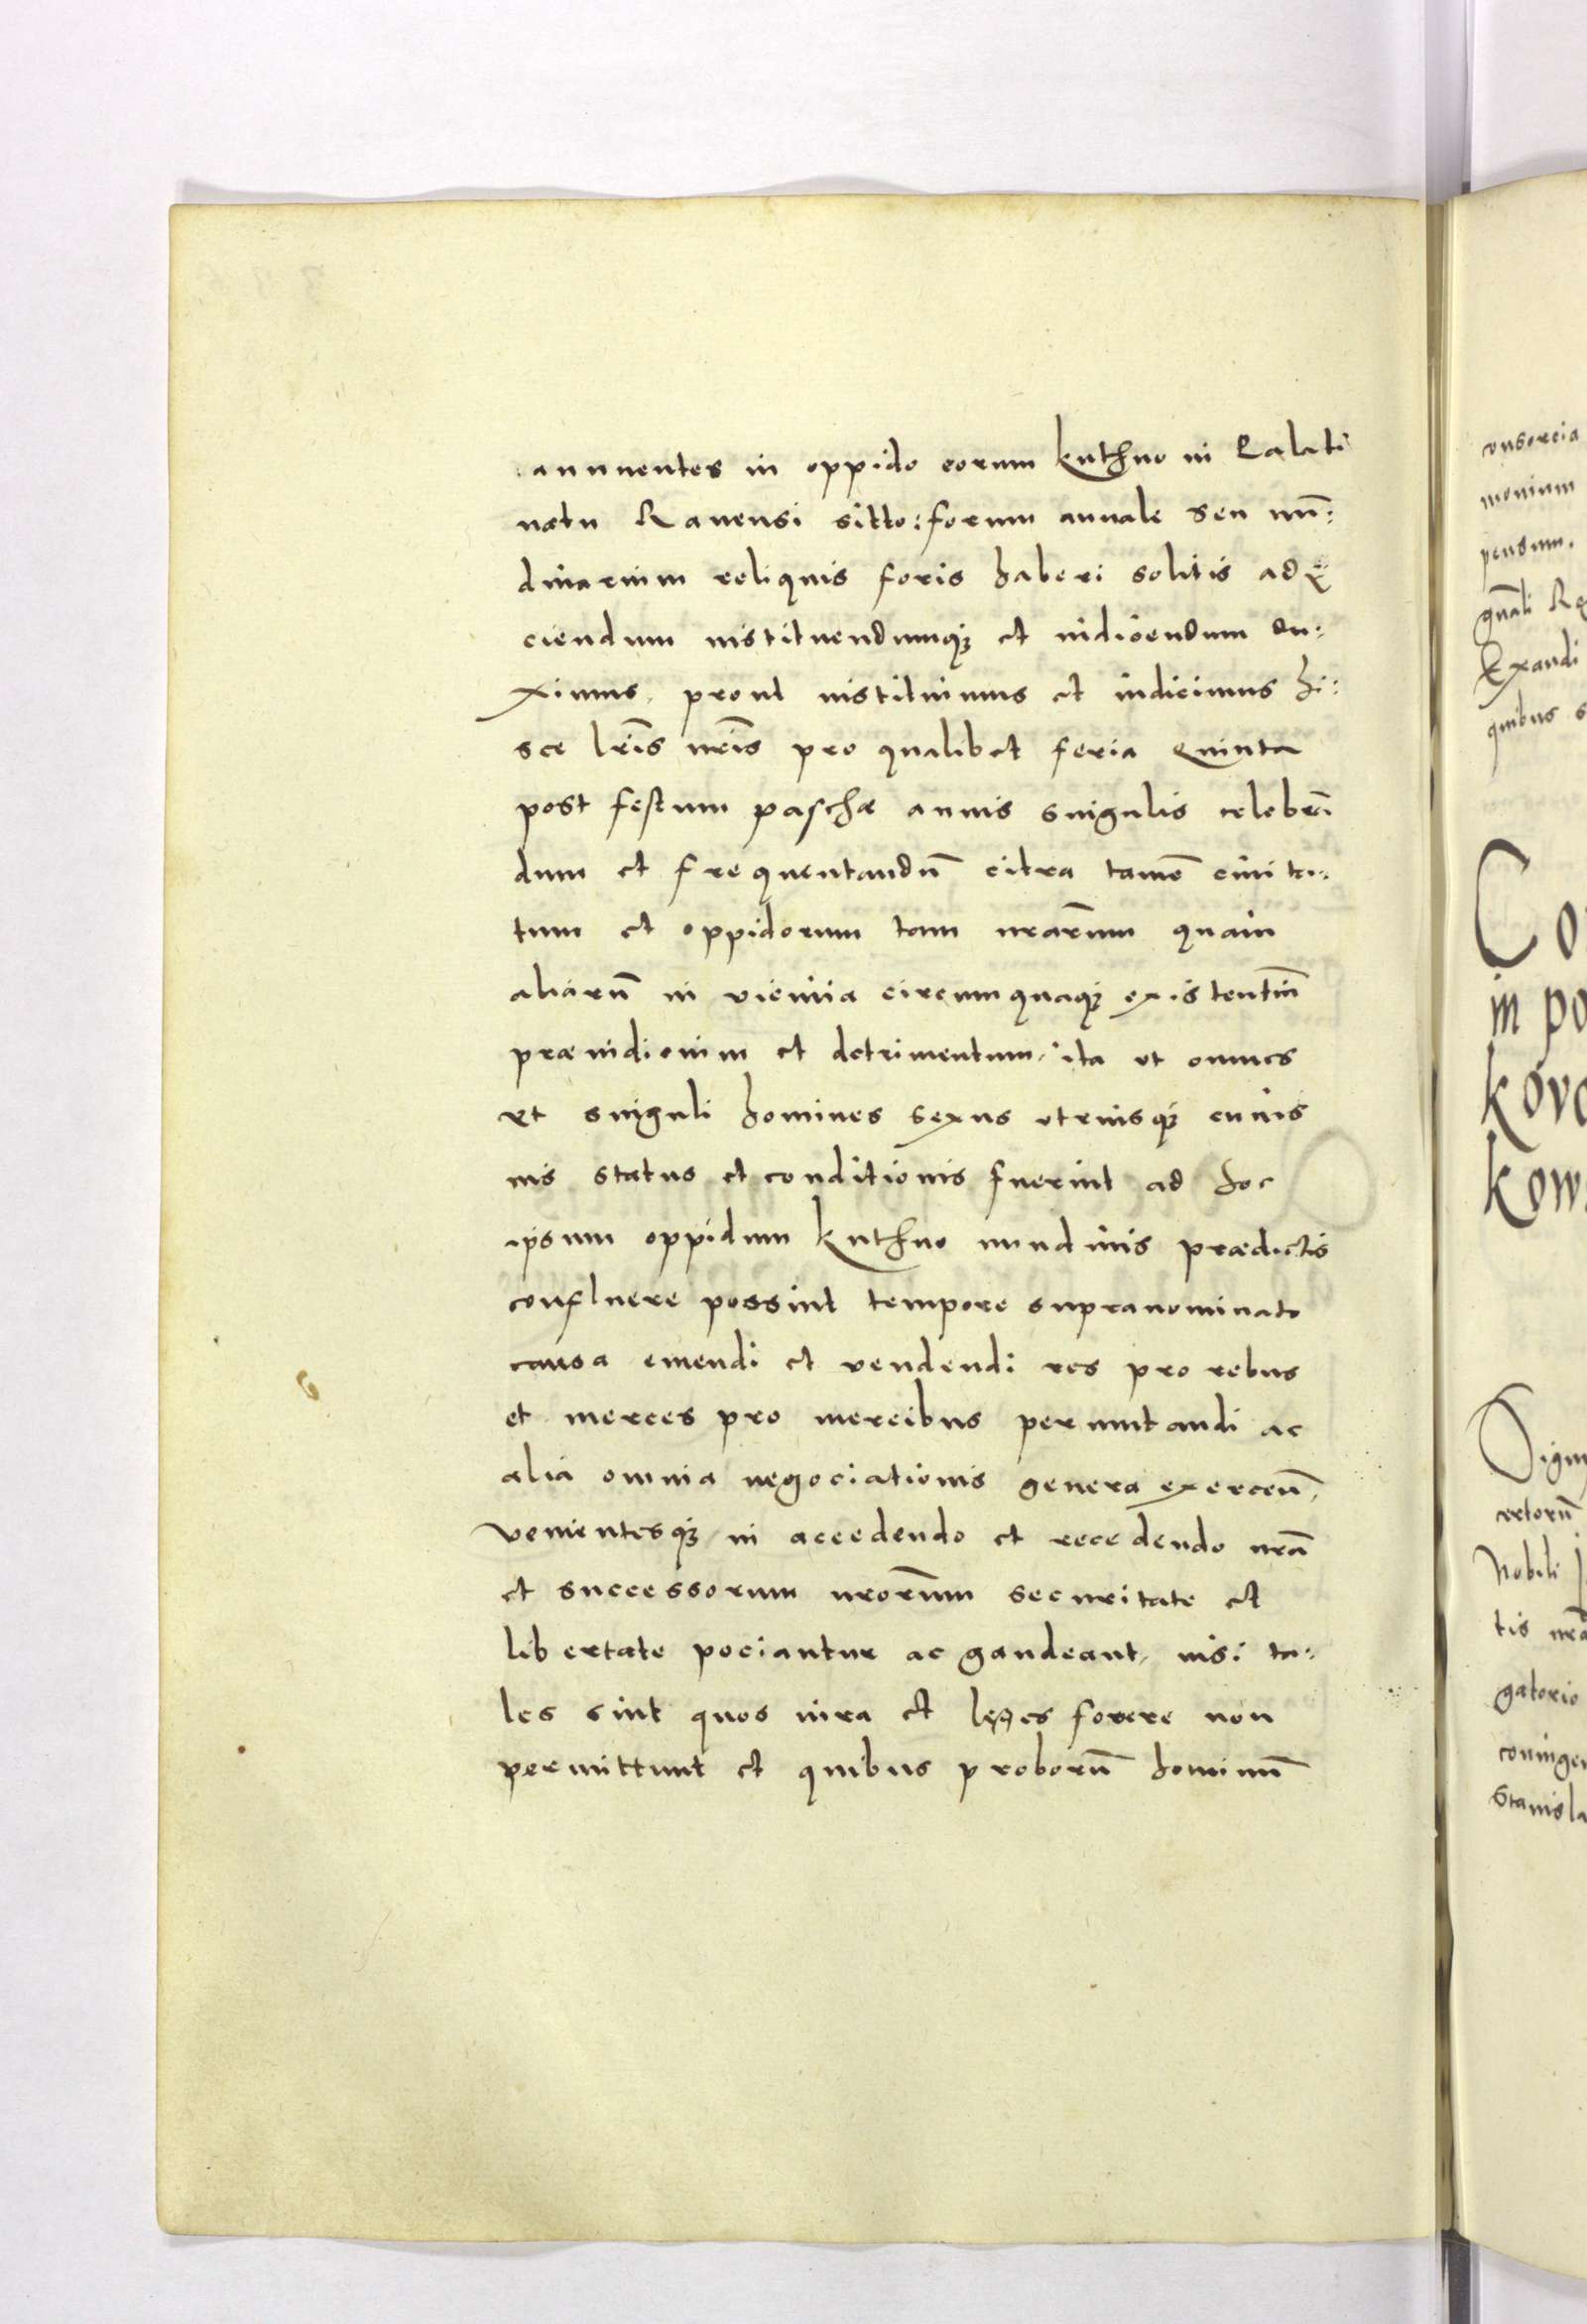 annuentes in oppido eorum Kuthno in Palati
natu Ravensi sitto: forum annale seu nun̄:
dinarium reliquis foris haberi solitis adij
ciendum instituendumq3 et indicendum du:
ximus, prout instituimus et indicimus hi:
sce lr̄is nr̄is pro qualibet feria quinta
post festum paschæ annis singulis celebrā
dum et frequentandū citra tamē civita:
tum et oppidorum tam nrārum quam
aliarū in vicinia circumquaq3 existentiū
præiudicium et detrimentum, ita ut omnes
et singuli homines sexus utriusq3 cuius
vis status et conditionis fuerint ad hoc
ipsum oppidum Kuthno nundinis prædictis
confluere possint tempore supranominato
causa emendi et vendendi res pro rebus
et merces pro mercibus permutandi ac
alia omnia negociationis genera exercen̄,
venientesq3 in accedendo et recedendo nrā
et successorum nrōrum securitate et
libertate pociantur ac gaudeant, nisi ta:
les sint quos iura et leges fovere non
permittunt et quibus proborū hominū
onsorcia
monium
pensum.
gnāli Re
Exandi
quibus s
Co
in po
kovo
kow
Sigm
certorū
Nobili
tis nrā
gatorio
coniuge
Stanisla